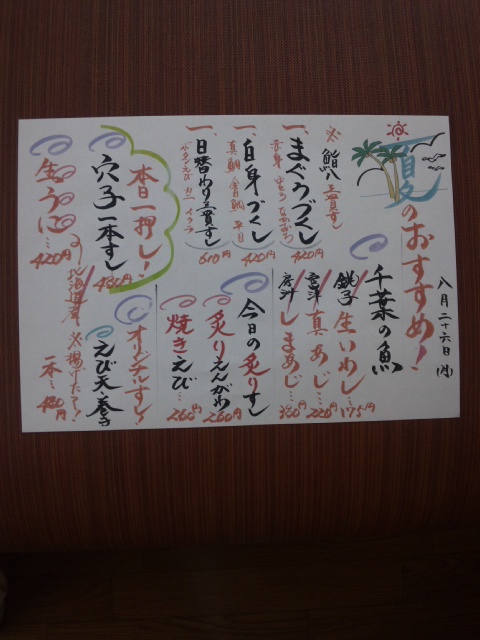 八月二十六日(月)
夏のおすすめ!
※鮨八三貫すし
一、まぐろづくし
420円
一、白身づくし
真鯛 金目鯛 平目
420円
一、日替わり三貫すし
ボタンえび カニ イクラ
610円
本日一押し!
穴子一本すし
480円
生うに…420円
北海道産
千葉の魚
銚子 生いわし…175円
真あじ…220円
しまあじ…380円
今日の炙りすし
炙りえんがわ
260円
焼きえび…260円
オリジナルすし!
えび天巻き
※揚げたて!
一本…480円